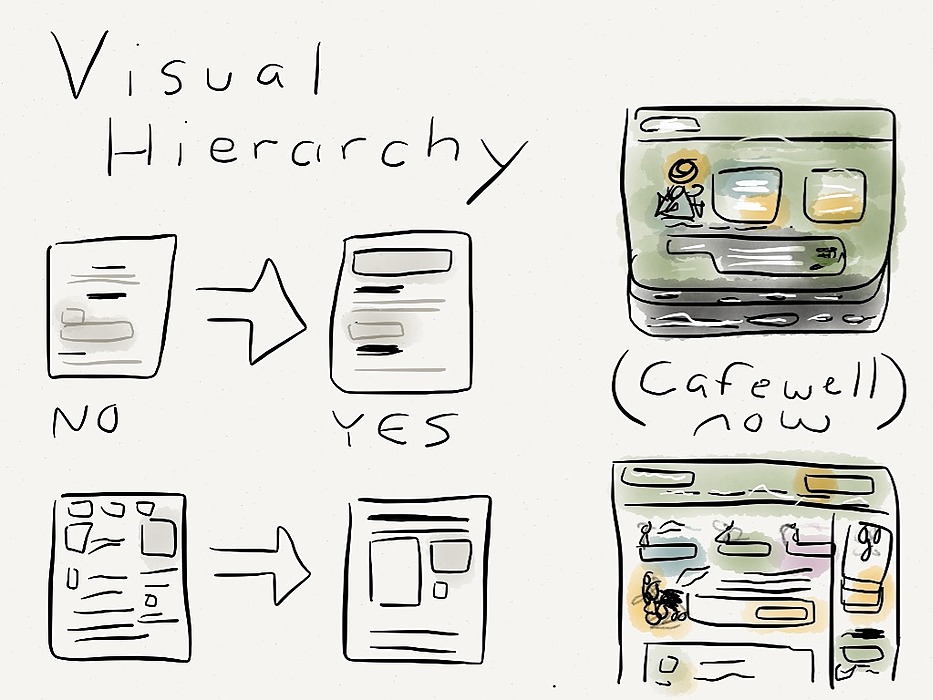 Visual
Hierarchy
NO
YES
(Cafewell)
now
go